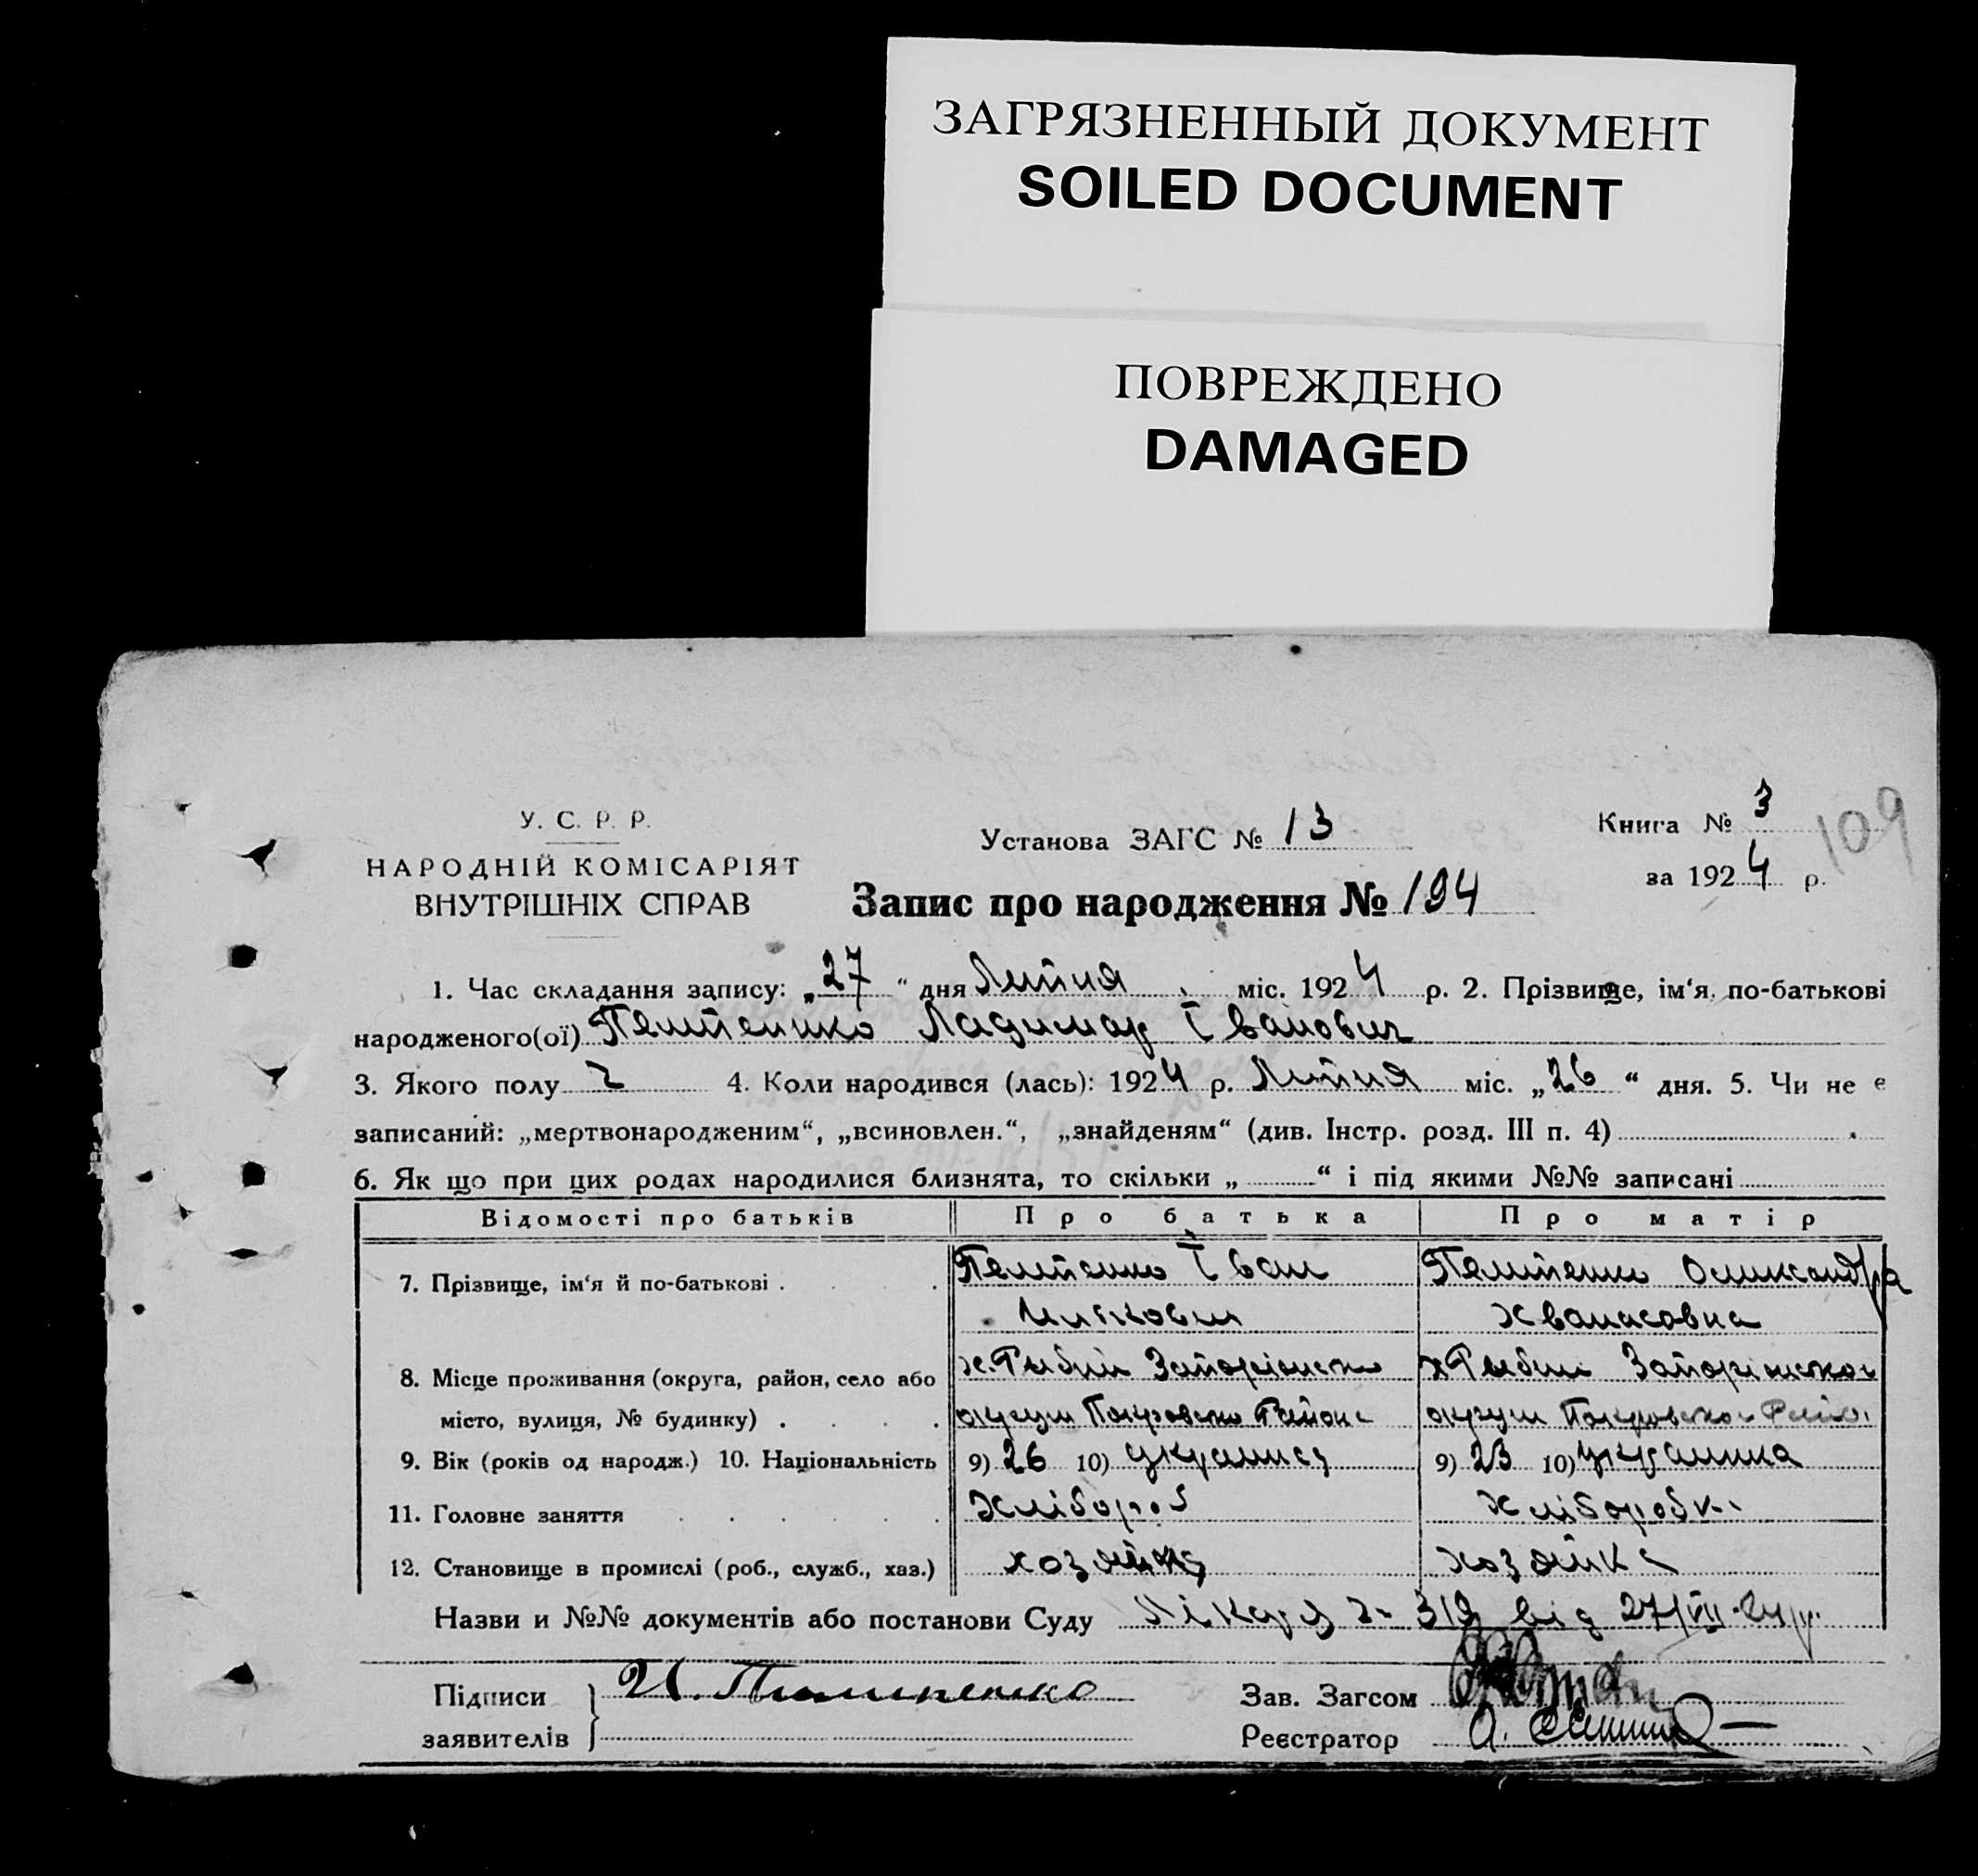 ЗАГРЯЗНЕННЫЙ ДОКУМЕНТ
SOILED DOCUMENT
ПОВРЕЖДЕНО
DAMAGED
У. С. Р. Р.
НАРОДНІЙ КОМІСАРІЯТ
ВНУТРІШНІХ СПРАВ
Установа ЗАГС № 13
Книга № 3
109
за 1924 р.
Запис про народження № 194
1. Час складання запису: „27“ дня Липня міс. 1924 р. 2. Прізвище, ім‘я, по-батькові
народженого(ої) Ладимар Іванович
3. Якого полу ч 4. Коли народився (лась): 1924 р. Липня міс. „26“ дня. 5. Чи не є
записаний: „мертвонародженим“, „всиновлен.“, „знайденям“ (див. Інстр. розд. III п. 4)
6. Як що при цих родах народилися близнята, то скільки „ “ і під якими №№ записані
Відомості про батьків Про батька Про матір
7. Прізвище, ім‘я й по-батькові . . . Іван Оликсандра
Хванасовна
8. Місце проживання (округа, район, село або х. Запоріжско х
місто, вулиця, № будинку) . . . . округи Покровско Району округи Покровского
9. Вік (років од народж.) 10. Національність 9) 26 10) українец 9) 23 10) українка
11. Головне заняття . . . . . . Хлібороб Хліборобка
12. Становище в промислі (роб., служб., хаз.) хозяйка
Назви и №№ документів або постанови Суду 319 від 27/VII-24 р.
Підписи
заявителів
И.
Зав. Загсом
Реєстратор